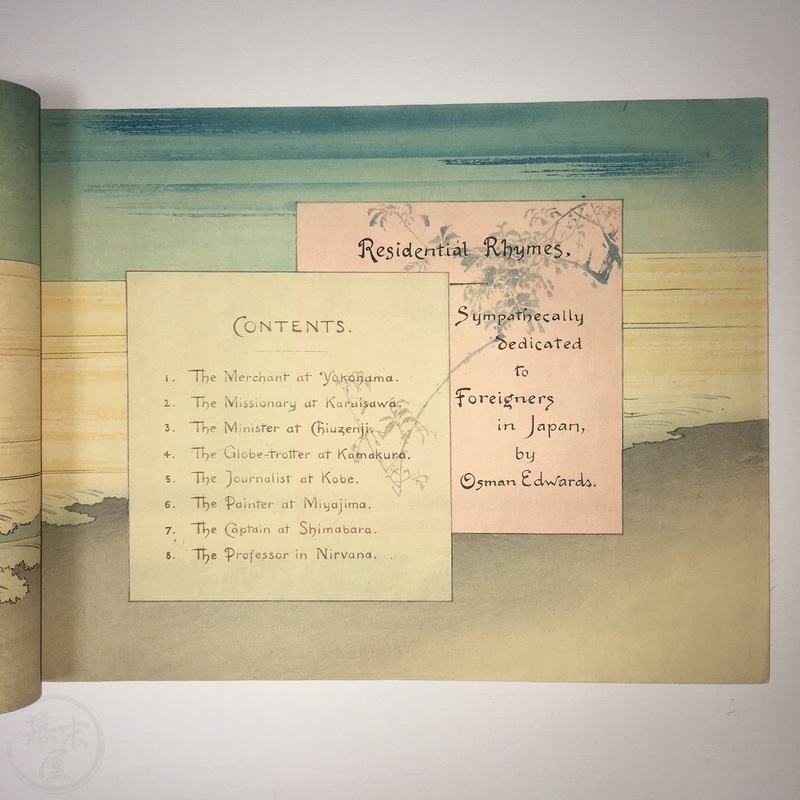 Residential Rhymes.
Sympathecally
Dedicated
to
Foreigners
in Japan,
by
Osman Edwards.
CONTENTS.
1. The Merchant at Yokohama.
2. The Missionary at Karuisawa.
3. The Minister at Chiuzenji.
4. The Globe-trotter at Kamakura.
5. The Journalist at Kobe.
6. The Painter at Miyajima.
7. The Captain at Shimabara.
8. The Professor in Nirvana.
幕末
屋